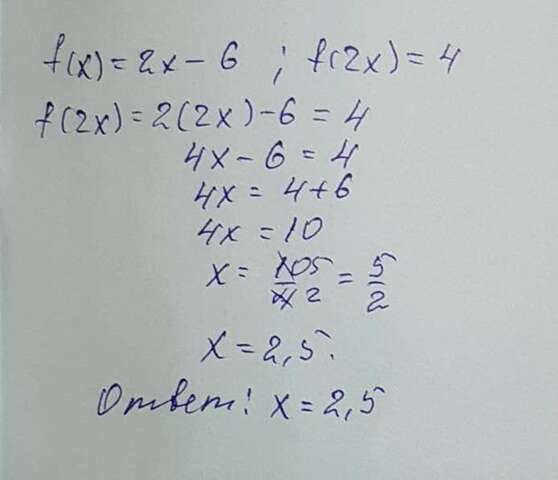 f(x) = 2x - 6 ; f(2x) = 4
f(2x) = 2(2x) - 6 = 4
4x - 6 = 4
4x = 4 + 6
4x = 10
x = 10 5 / 4 2 = 5/2
x = 2,5.
Ответ: x = 2,5